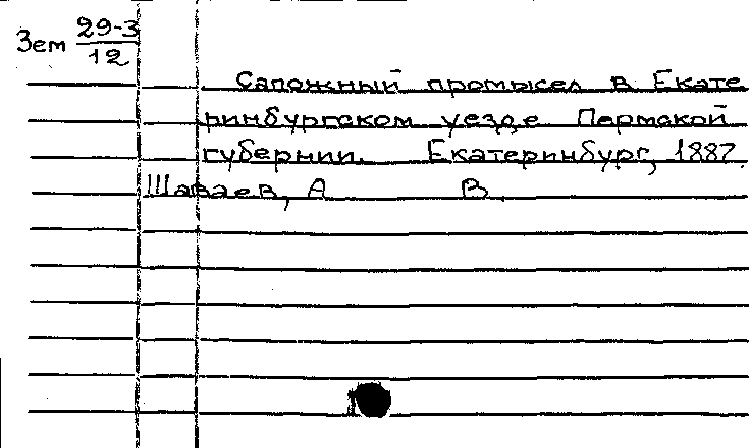 Зем 29-3
12
Сапожный промысел в Екате
ринбургском уезде Пермской
губернии. Екатеринбург, 1887.
Шаваев, А В.